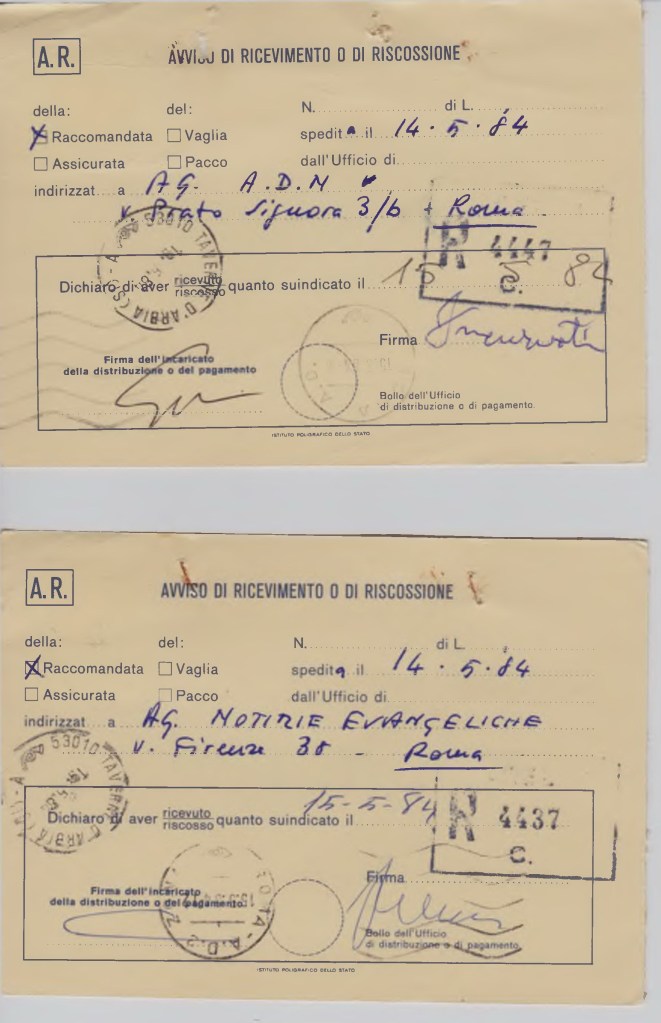 A.R.
AVVISO DI RICEVIMENTO O DI RISCOSSIONE
della: del: N. di L.
Raccomandata Vaglia spedita il 14.5.84
Assicurata Pacco dall'Ufficio di
indirizzat a AG. A.D.N
v. Prato Signora 3/b Roma
53010 TAVERNE D'ARBIA (SI)-A
R 4447
C.
Dichiaro di aver ricevuto riscosso quanto suindicato il 15 84
Firma
Firma dell'incaricato
della distribuzione o del pagamento
Bollo dell'Ufficio
di distribuzione o di pagamento.
ISTITUTO POLIGRAFICO DELLO STATO
A.R.
AVVISO DI RICEVIMENTO O DI RISCOSSIONE
della: del: N. di L.
Raccomandata Vaglia spedita il 14.5.84
Assicurata Pacco dall'Ufficio di
indirizzat a AG. NOTIZIE EVANGELICHE
v. Firenze 38 - Roma
53010 TAVERNE D'ARBIA (SI)-A
R 4437
C.
Dichiaro di aver ricevuto riscosso quanto suindicato il 15-5-84
Firma
Firma dell'incaricato
della distribuzione o del pagamento
Bollo dell'Ufficio
di distribuzione o di pagamento.
ISTITUTO POLIGRAFICO DELLO STATO